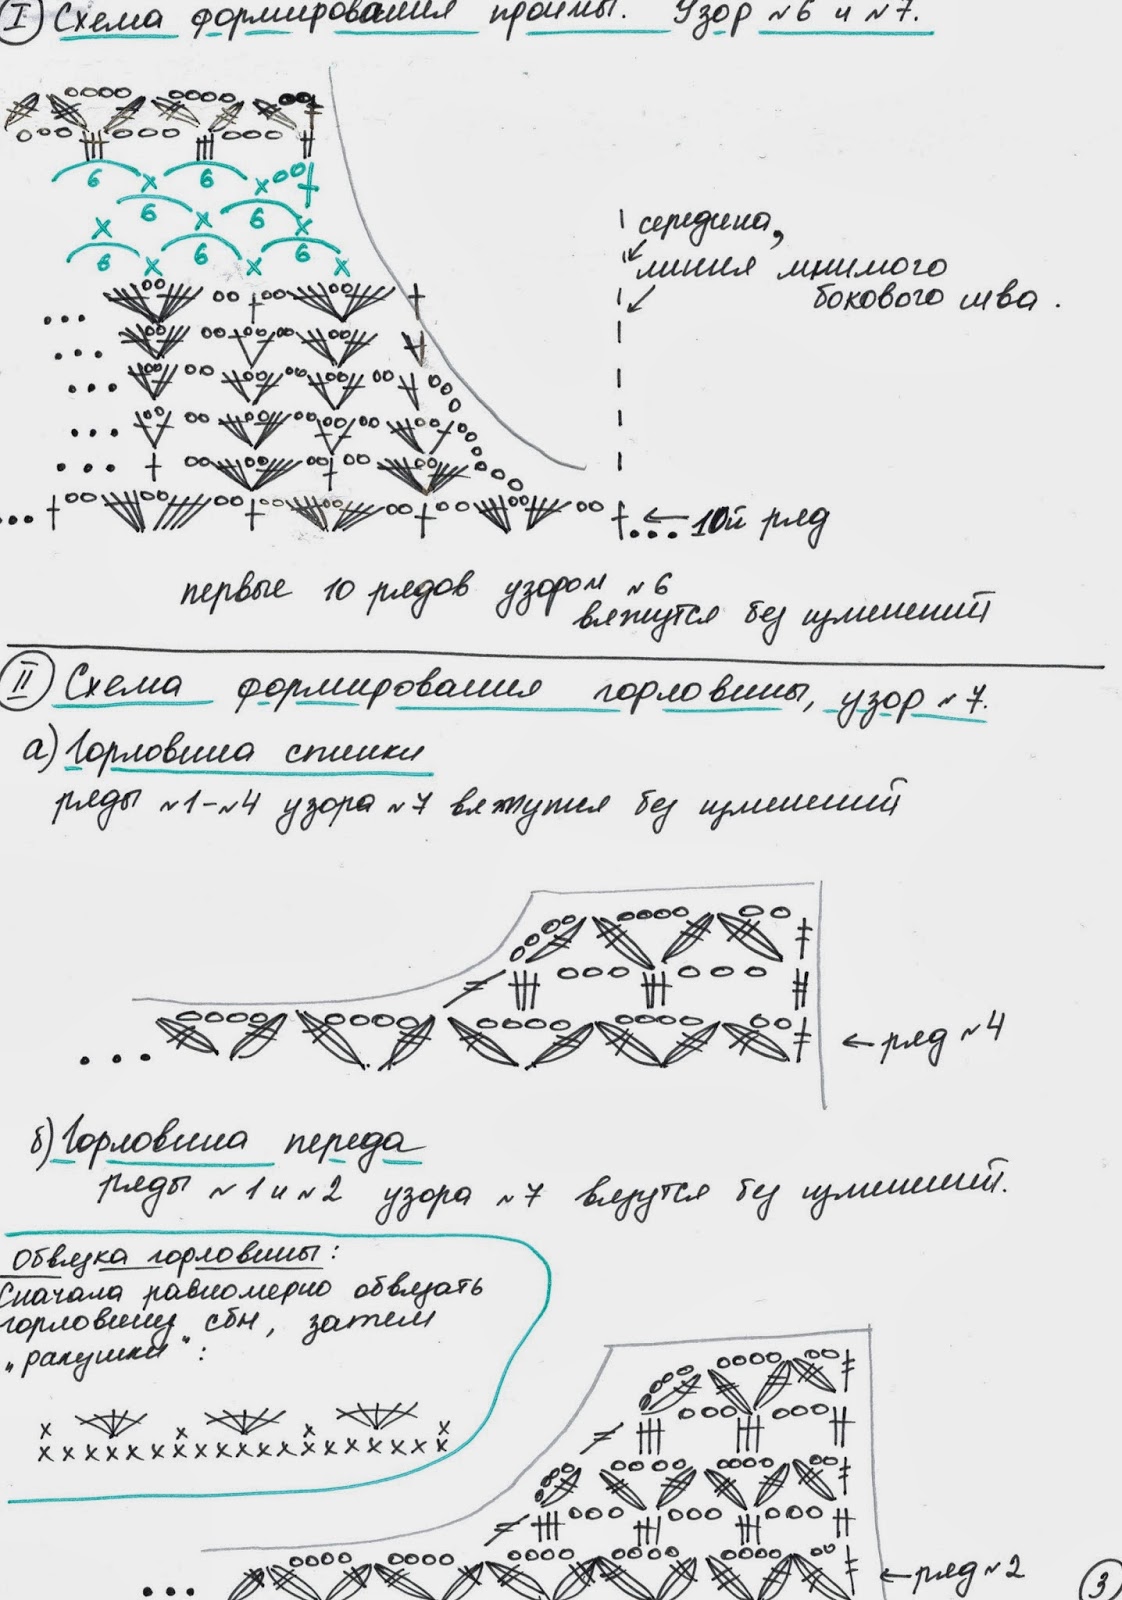 I) Схема формирования проймы. Узор №6 и №7.
6 6
6 6
6 6 6
середина,
линия мнимого
бокового шва.
... ← 10й ряд
первые 10 рядов узором №6
вяжутся без изменений
II) Схема формирования горловины, узор №7.
а) Горловина спинки
ряды №1-№4 узора №7 вяжутся без изменений
... ← ряд №4
б) Горловина переда
ряды №1 и №2 узора №7 вяжутся без изменений.
Обвязка горловины:
Сначала равномерно обвязать
горловину сбн, затем
„ракушки":
... ← ряд №2
3